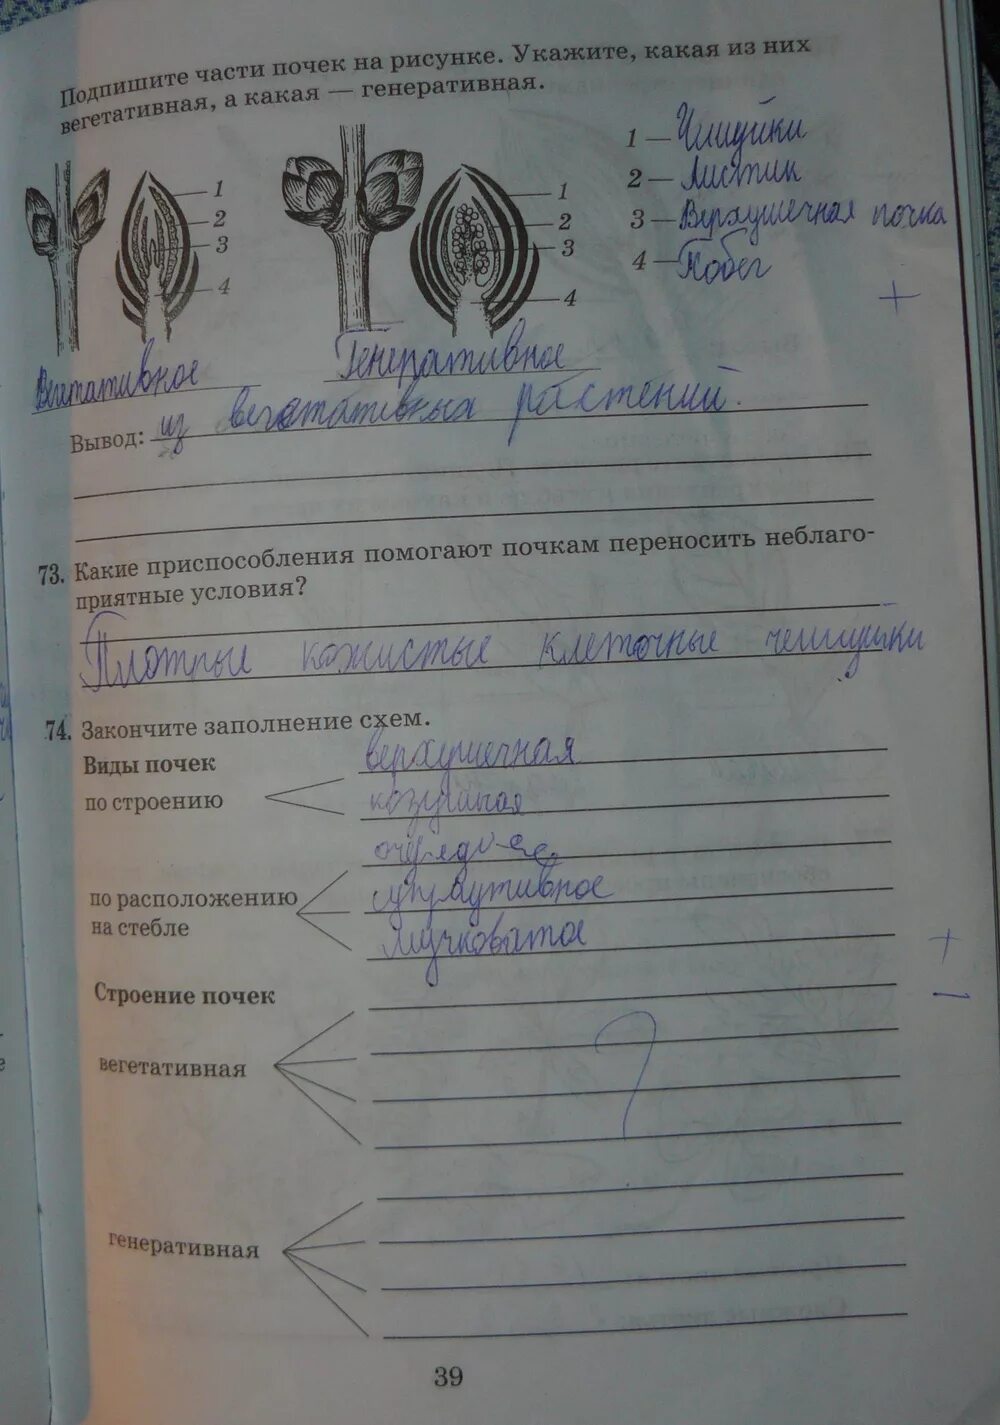 Подпишите части почек на рисунке. Укажите, какая из них
вегетативная, а какая — генеративная.
1 — Чешуйки
2 — Листик
3 — Верхушечная почка
4 — Побег
1
2
3
4
1
2
3
4
+
Вегетативное
Генеративное
Вывод: из вегетативных растений.
73. Какие приспособления помогают почкам переносить неблаго-
приятные условия?
Плотные кожистые клеточные чешуйки
74. Закончите заполнение схем.
Виды почек
верхушечная
по строению
по расположению
на стебле
мучковатое
+
Строение почек
–
?
вегетативная
генеративная
39